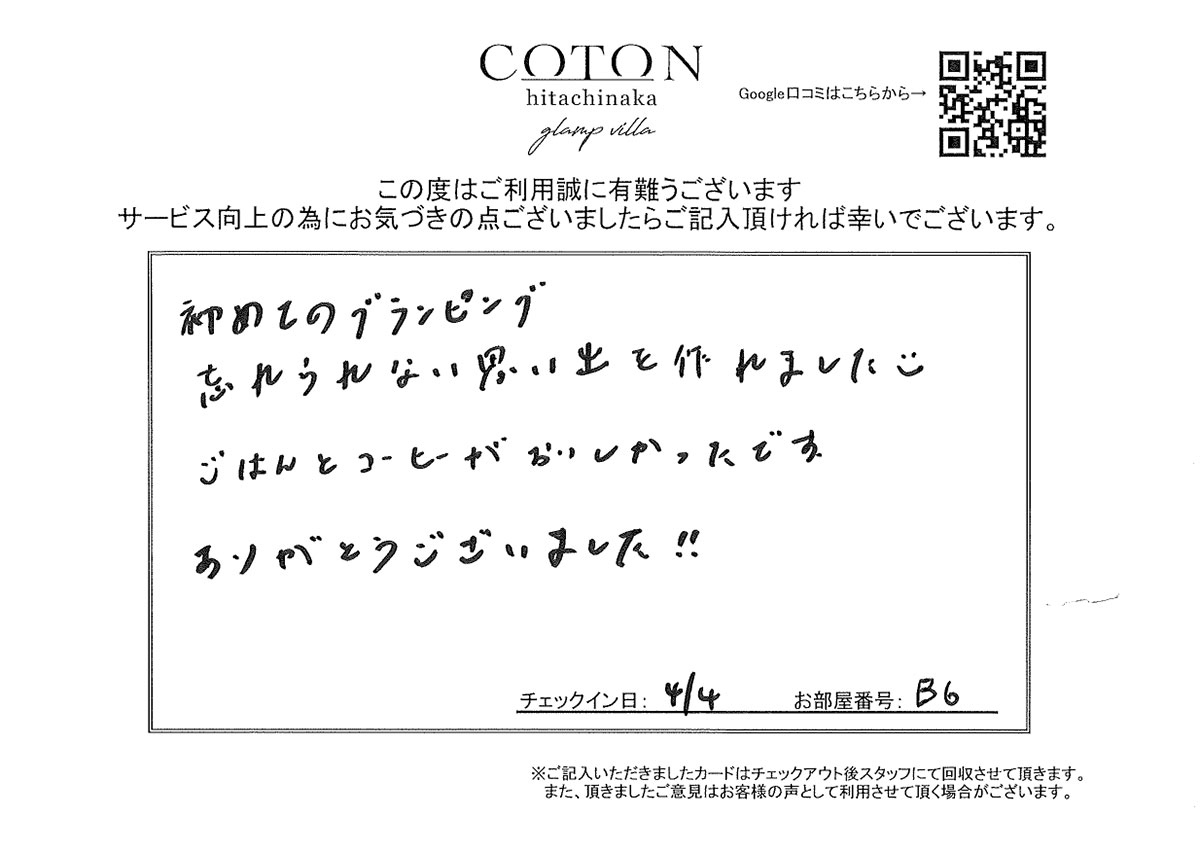 COTON
hitachinaka
glamp villa
Google口コミはこちらから→
この度はご利用誠に有難うございます
サービス向上の為にお気づきの点ございましたらご記入頂ければ幸いでございます。
初めてのグランピング
忘れられない思い出を作れました
ごはんとコーヒーがおいしかったです
ありがとうございました!!
チェックイン日: 4/4 お部屋番号: B6
※ご記入いただきましたカードはチェックアウト後スタッフにて回収させて頂きます。
また、頂きましたご意見はお客様の声として利用させて頂く場合がございます。